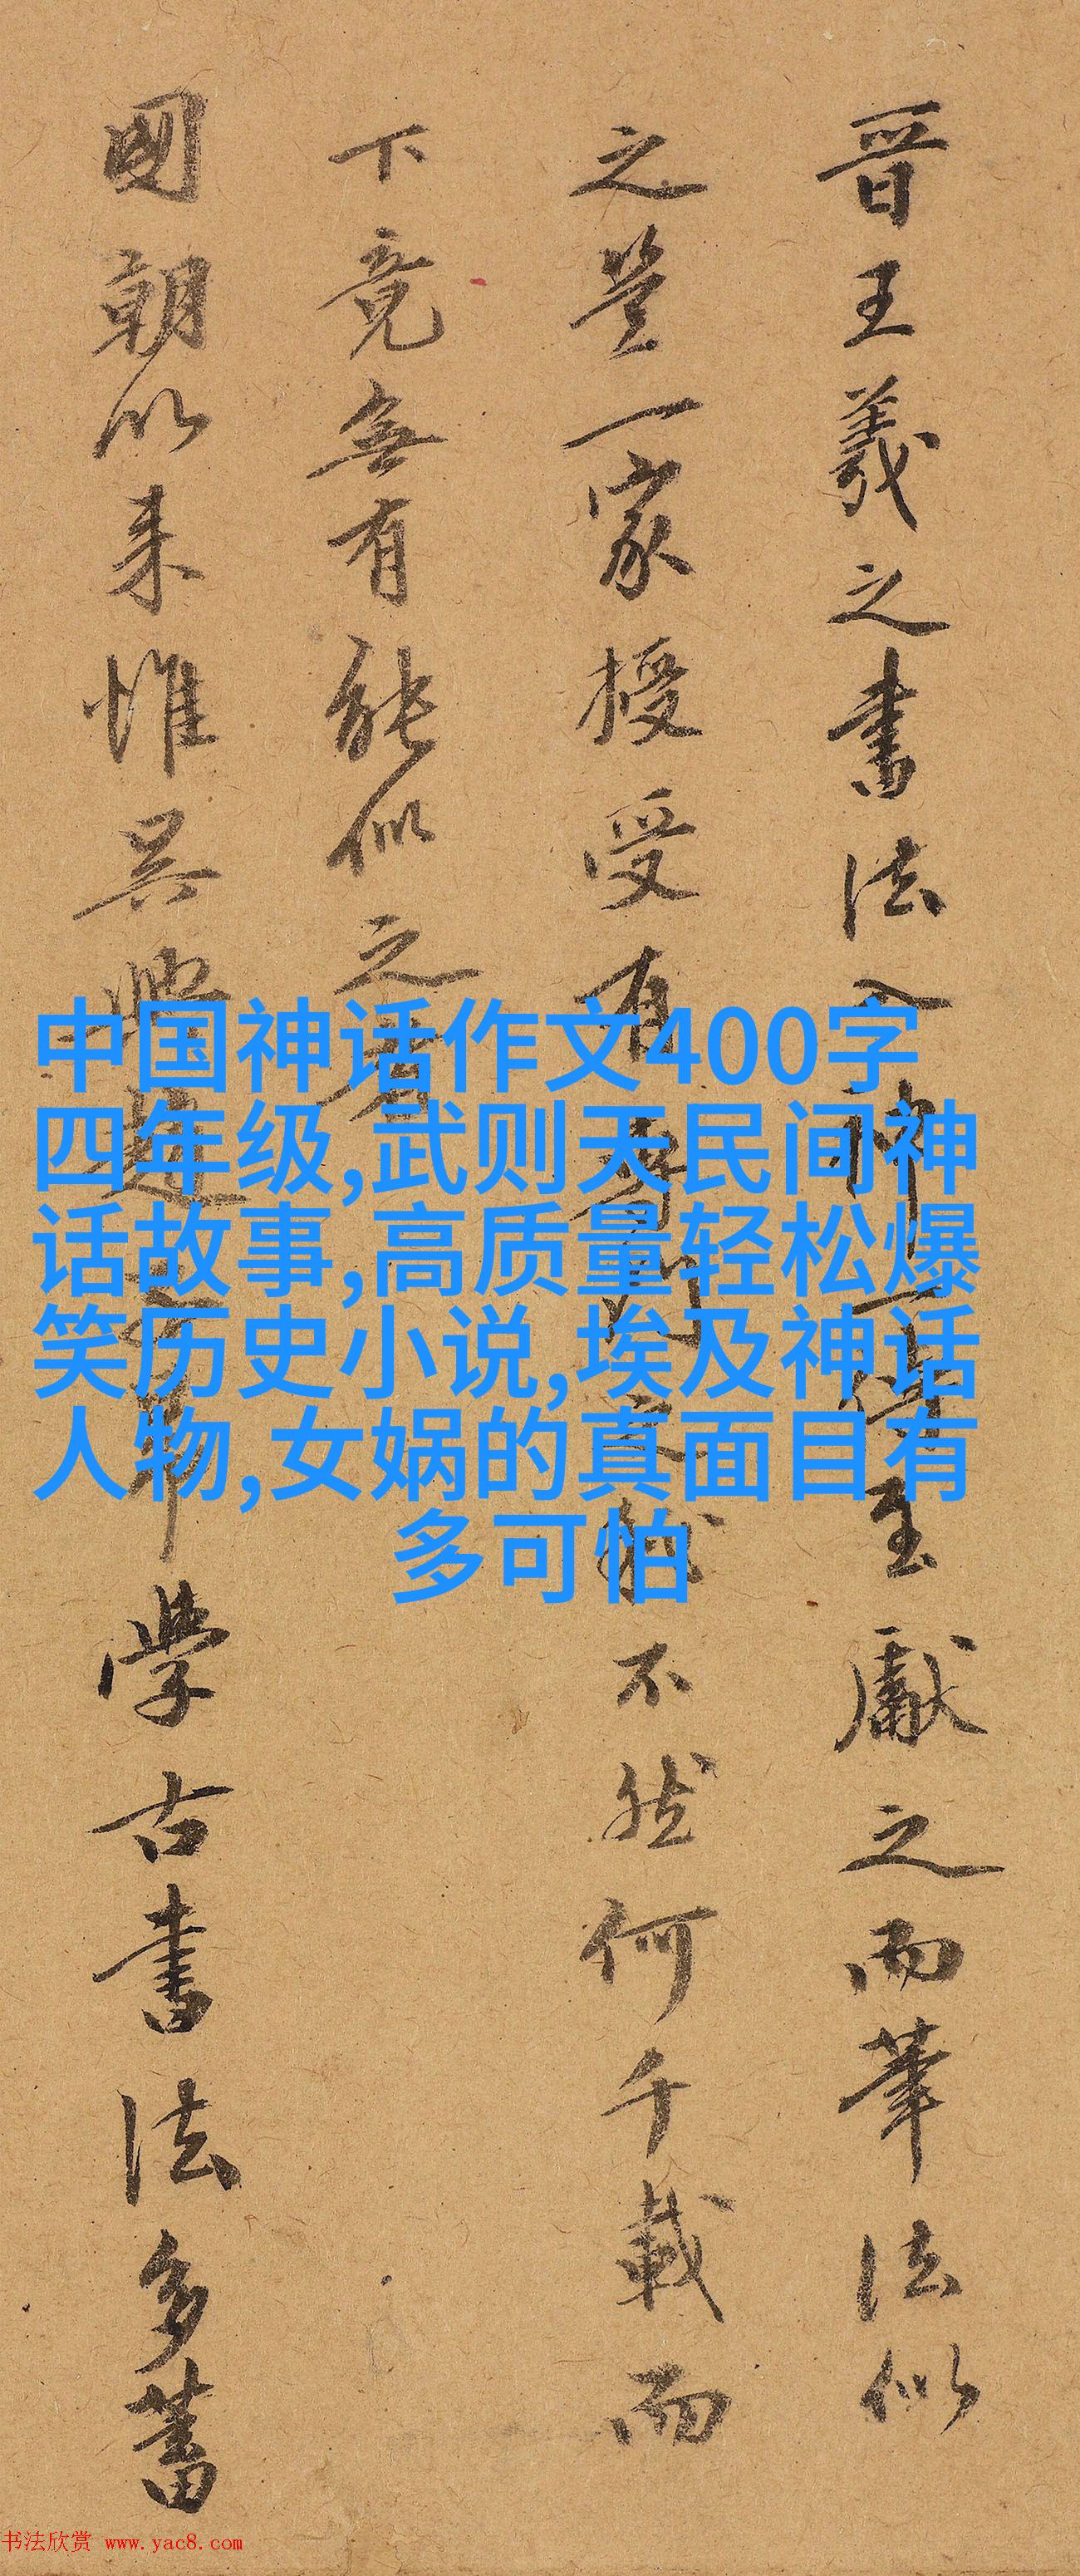 晋王羲之書法入神傳至獻之而筆法似
之豈一家授受有不然何千載而
下竟無有能似之者
國朝以来惟吴興趙學古書法多蓄
中国神话作文400字
四年级,武则天民间神
话故事,高质量轻松爆
笑历史小说,埃及神话
人物,女娲的真面目有
多可怕
书法欣赏 www.yac8.com